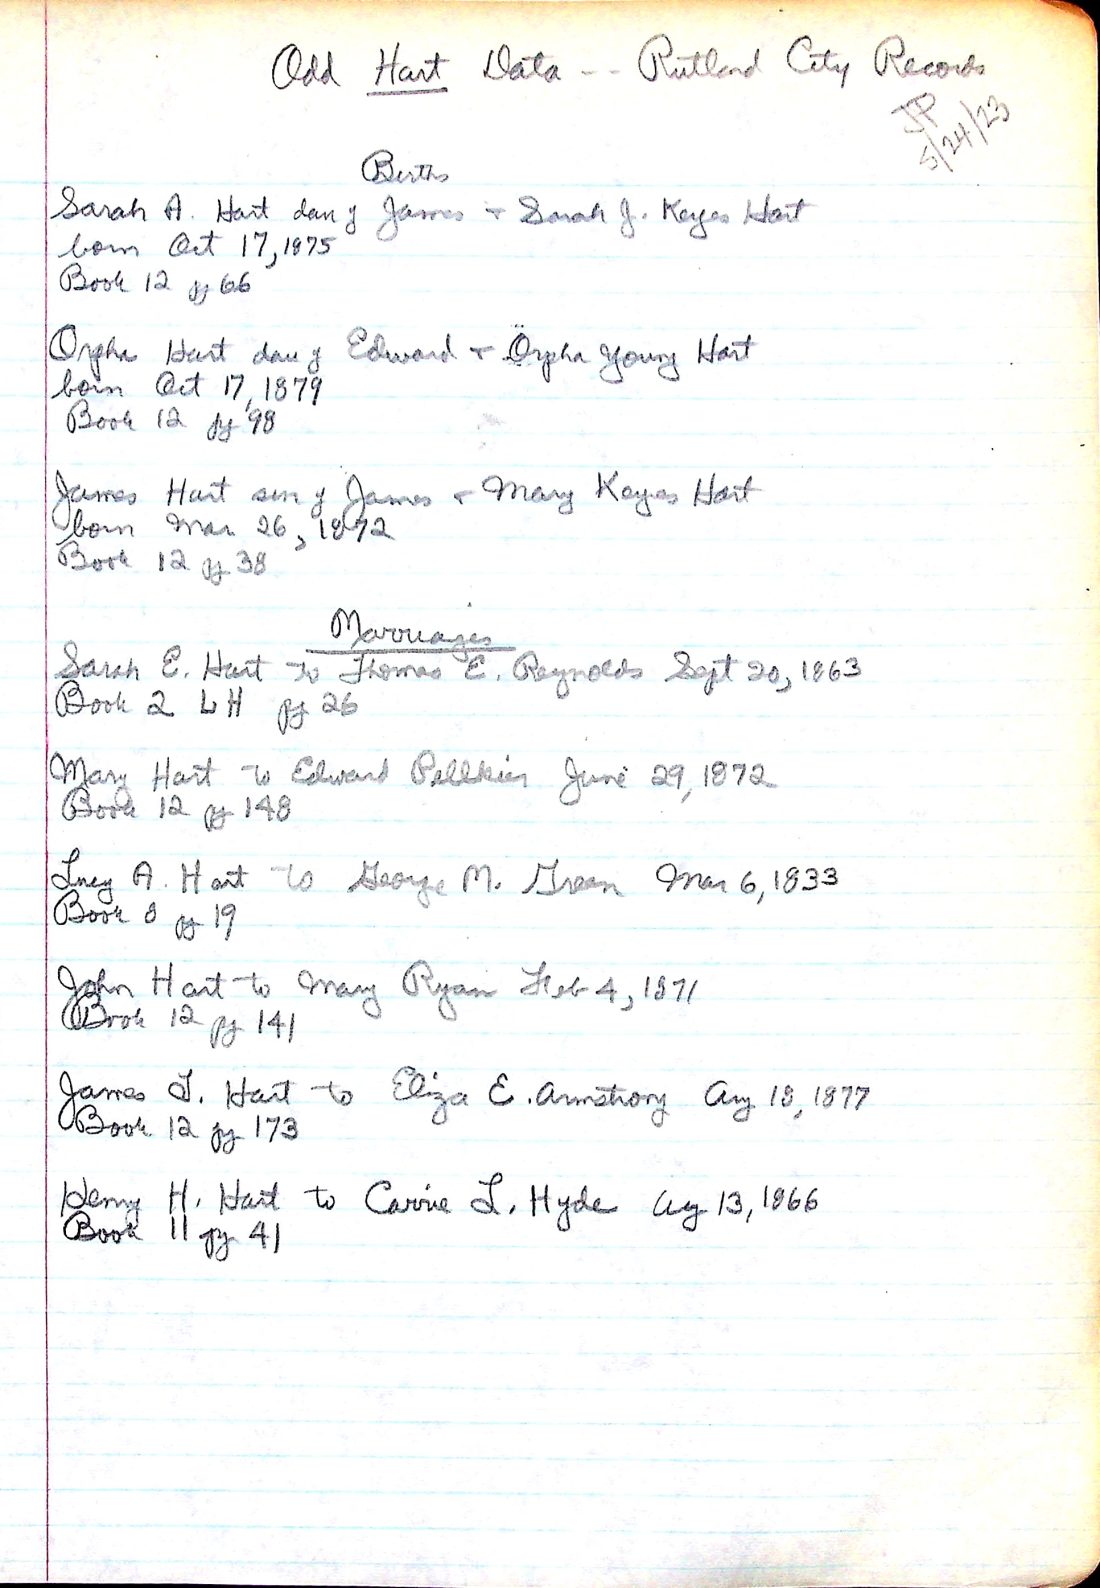 Odd Hart Data -- Rutland City Records
JP
5/24/23
Births
Sarah A. Hart dau of James + Sarah J. Keyes Hart
born Oct 17, 1875
Book 12 pg 66
Orpha Hart dau of Edward + Orpha Young Hart
born Oct 17, 1879
Book 12 pg 98
James Hart son of James + Mary Keyes Hart
born Mar 26, 1872
Book 12 pg 38
Marriages
Sarah E. Hart to Thomas E. Reynolds Sept 20, 1863
Book 2 LH pg 26
Mary Hart to Edward June 29, 1872
Book 12 pg 148
Lucy A. Hart to George M. Green Mar 6, 1833
Book 8 pg 19
John Hart to Mary Ryan Feb 4, 1871
Book 12 pg 141
James T. Hart to Eliza E. Armstrong Aug 18, 1877
Book 12 pg 173
Henry H. Hart to Carrie L. Hyde Aug 13, 1866
Book 11 pg 41